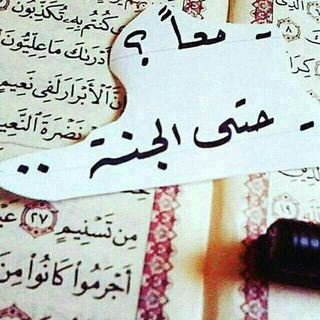 - معاً ؟
- حتى الجنة ..
كُنتُم بِهِ تُكَذِّبُونَ
أَدْرَىٰكَ مَا عِلِّيُّونَ
الْأَبْرَارَ لَفِي نَعِيمٍ
نَضْرَةَ النَّعِيمِ
مِن تَسْنِيمٍ ٢٧
أَجْرَمُوا كَانُوا مِنَ